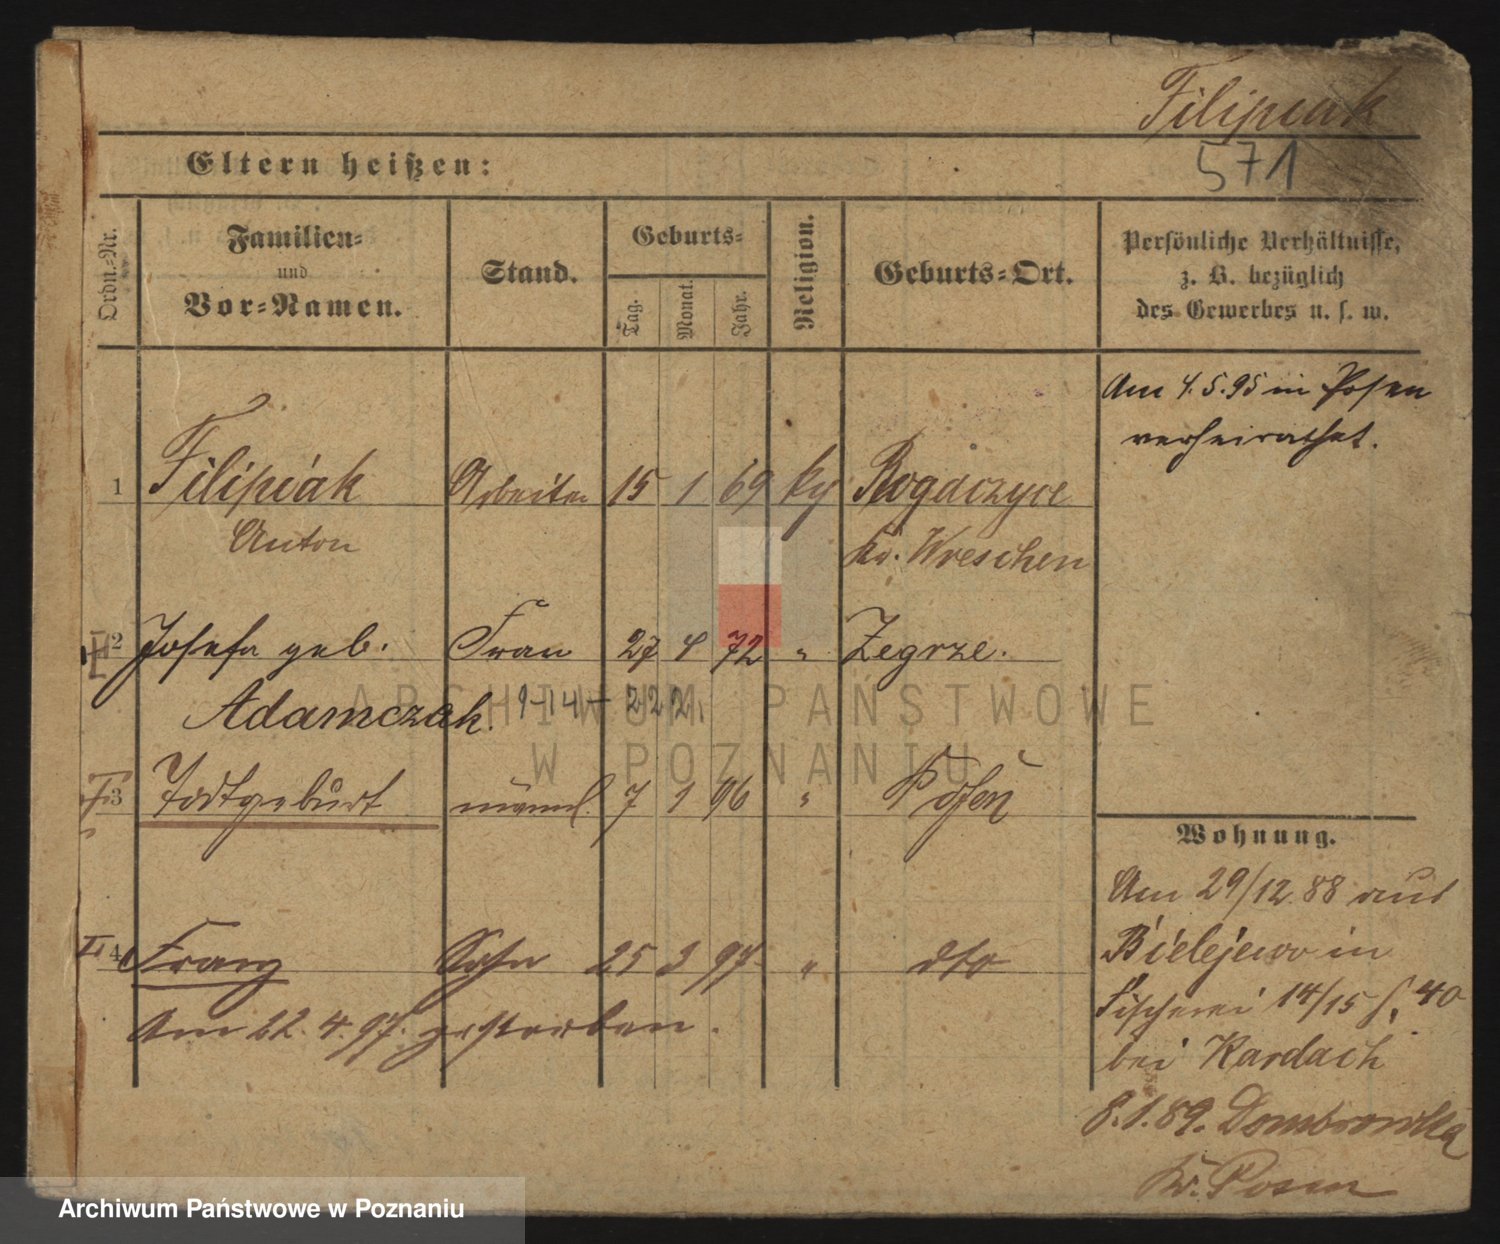 Filipiak
571
Eltern heißen:
Ordn.-Nr.
Familien-
und
Vor-Namen.
Stand.
Geburts-
Tag.
Monat.
Jahr.
Religion.
Geburts-Ort.
Persönliche Verhältnisse,
z. B. bezüglich
des Gewerbes u. s. w.
Am 4.5.95 in Posen
verheirathet.
1 Filipiak Arbeiter 15 1 69 Bogaczyce
Anton Kr. Wreschen
2 Josefa geb. Frau 27 4 72 " Zegrze.
Adamczak. 9-14- 222.
3 Todtgeburt männl. 7 1 96 " Posen
4 Franz Sohn 25 3 97 " dto
Am 22.4.97. gestorben.
Wohnung.
Am 29/12 88 aus
Bielejewo in
Fischerei 14/15 40
bei Kardach
8.1.89. Dombrowka
Kr. Posen
ARCHIWUM PAŃSTWOWE
W POZNANIU
Archiwum Państwowe w Poznaniu